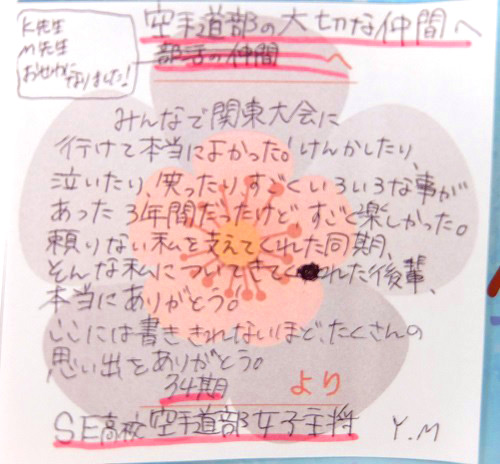 K先生
M先生
お世話に
なりました!
空手道部の大切な仲間へ
部活の仲間へ
みんなで関東大会に
行けて本当によかった。けんかしたり、
泣いたり、笑ったりすごくいろいろな事が
あった3年間だったけどすごく楽しかった。
頼りない私を支えてくれた同期、
そんな私についてきてくれた後輩、
本当にありがとう!
ここには書ききれないほど、たくさんの
思い出をありがとう。
34期 より
SE高校空手道部女子主将 Y.M